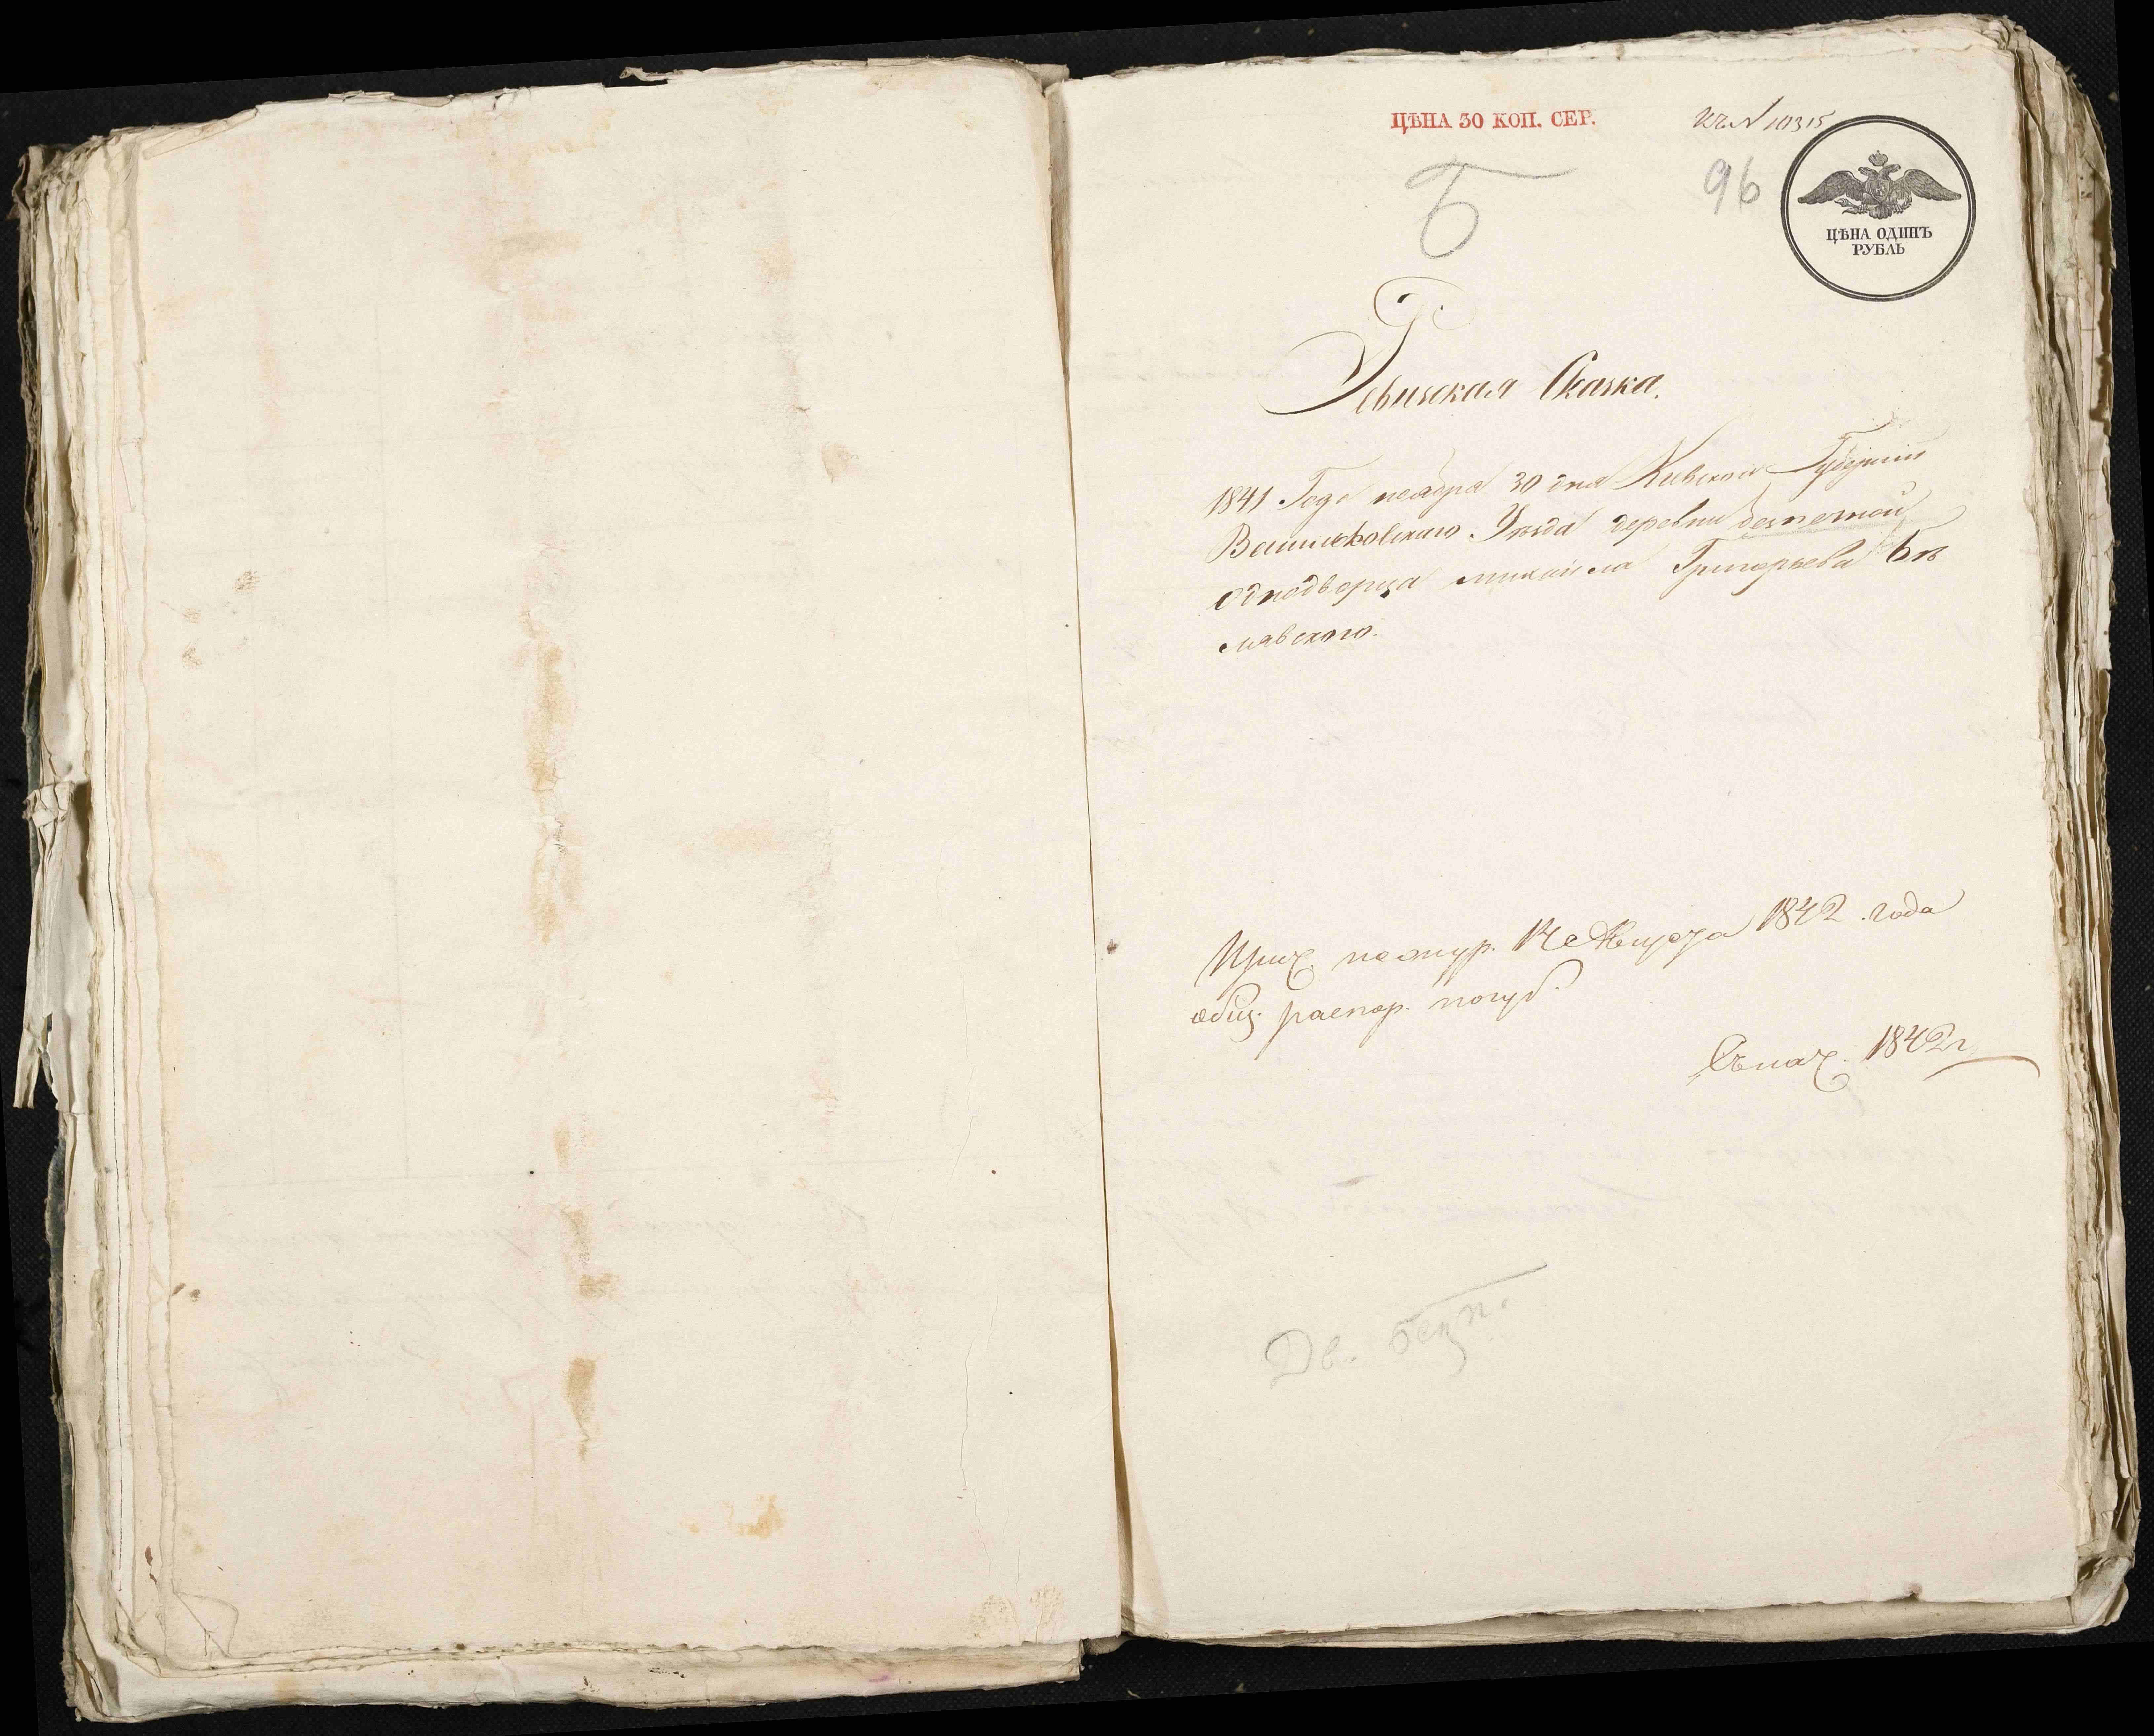 ЦѢНА 30 КОП. СЕР.
къ № 10315
Б
96
ЦѢНА ОДИНЪ
РУБЛЬ
Ревизская Сказка.
1841 Года ноября 30 дня Киевской Губернии
Васильковского Уезда деревни безпечной
Однодворца михаила Григорьева Бѣ
лявского.
Прич. по жур. Августа 1842 года
общ. распор. погуб.
Съ нач. 1842 г
Дв. безп.